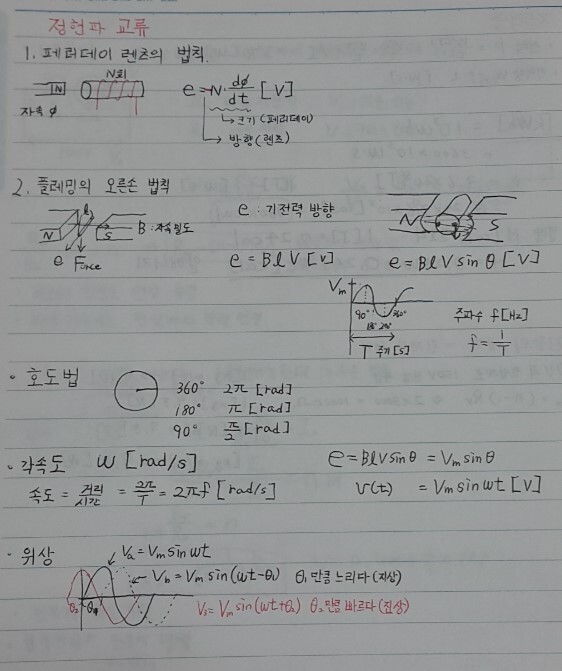 정현파 교류
1. 페러데이 렌츠의 법칙.
N회
N
자속 φ
e = -N · dφ/dt [V]
크기 (페러데이)
방향 (렌츠)
2. 플레밍의 오른손 법칙
N S B : 자속밀도
e Force
e : 기전력 방향
N S
e = BlV [V]
e = BlV sin θ [V]
Vm
90° 180° 270° 360°
T 주기 [S]
주파수 f [Hz]
f = 1/T
· 호도법
360° 2π [rad]
180° π [rad]
90° π/2 [rad]
· 각속도 ω [rad/s]
속도 = 거리/시간 = 2π/T = 2πf [rad/s]
e = BlV sin θ = Vm sin θ
v(t) = Vm sin ωt [V]
· 위상
Va = Vm sin ωt
Vb = Vm sin (ωt - θ1) θ1 만큼 느리다 (지상)
V3 = Vm sin (ωt + θ2) θ2 만큼 빠르다 (진상)
θ2 θ1